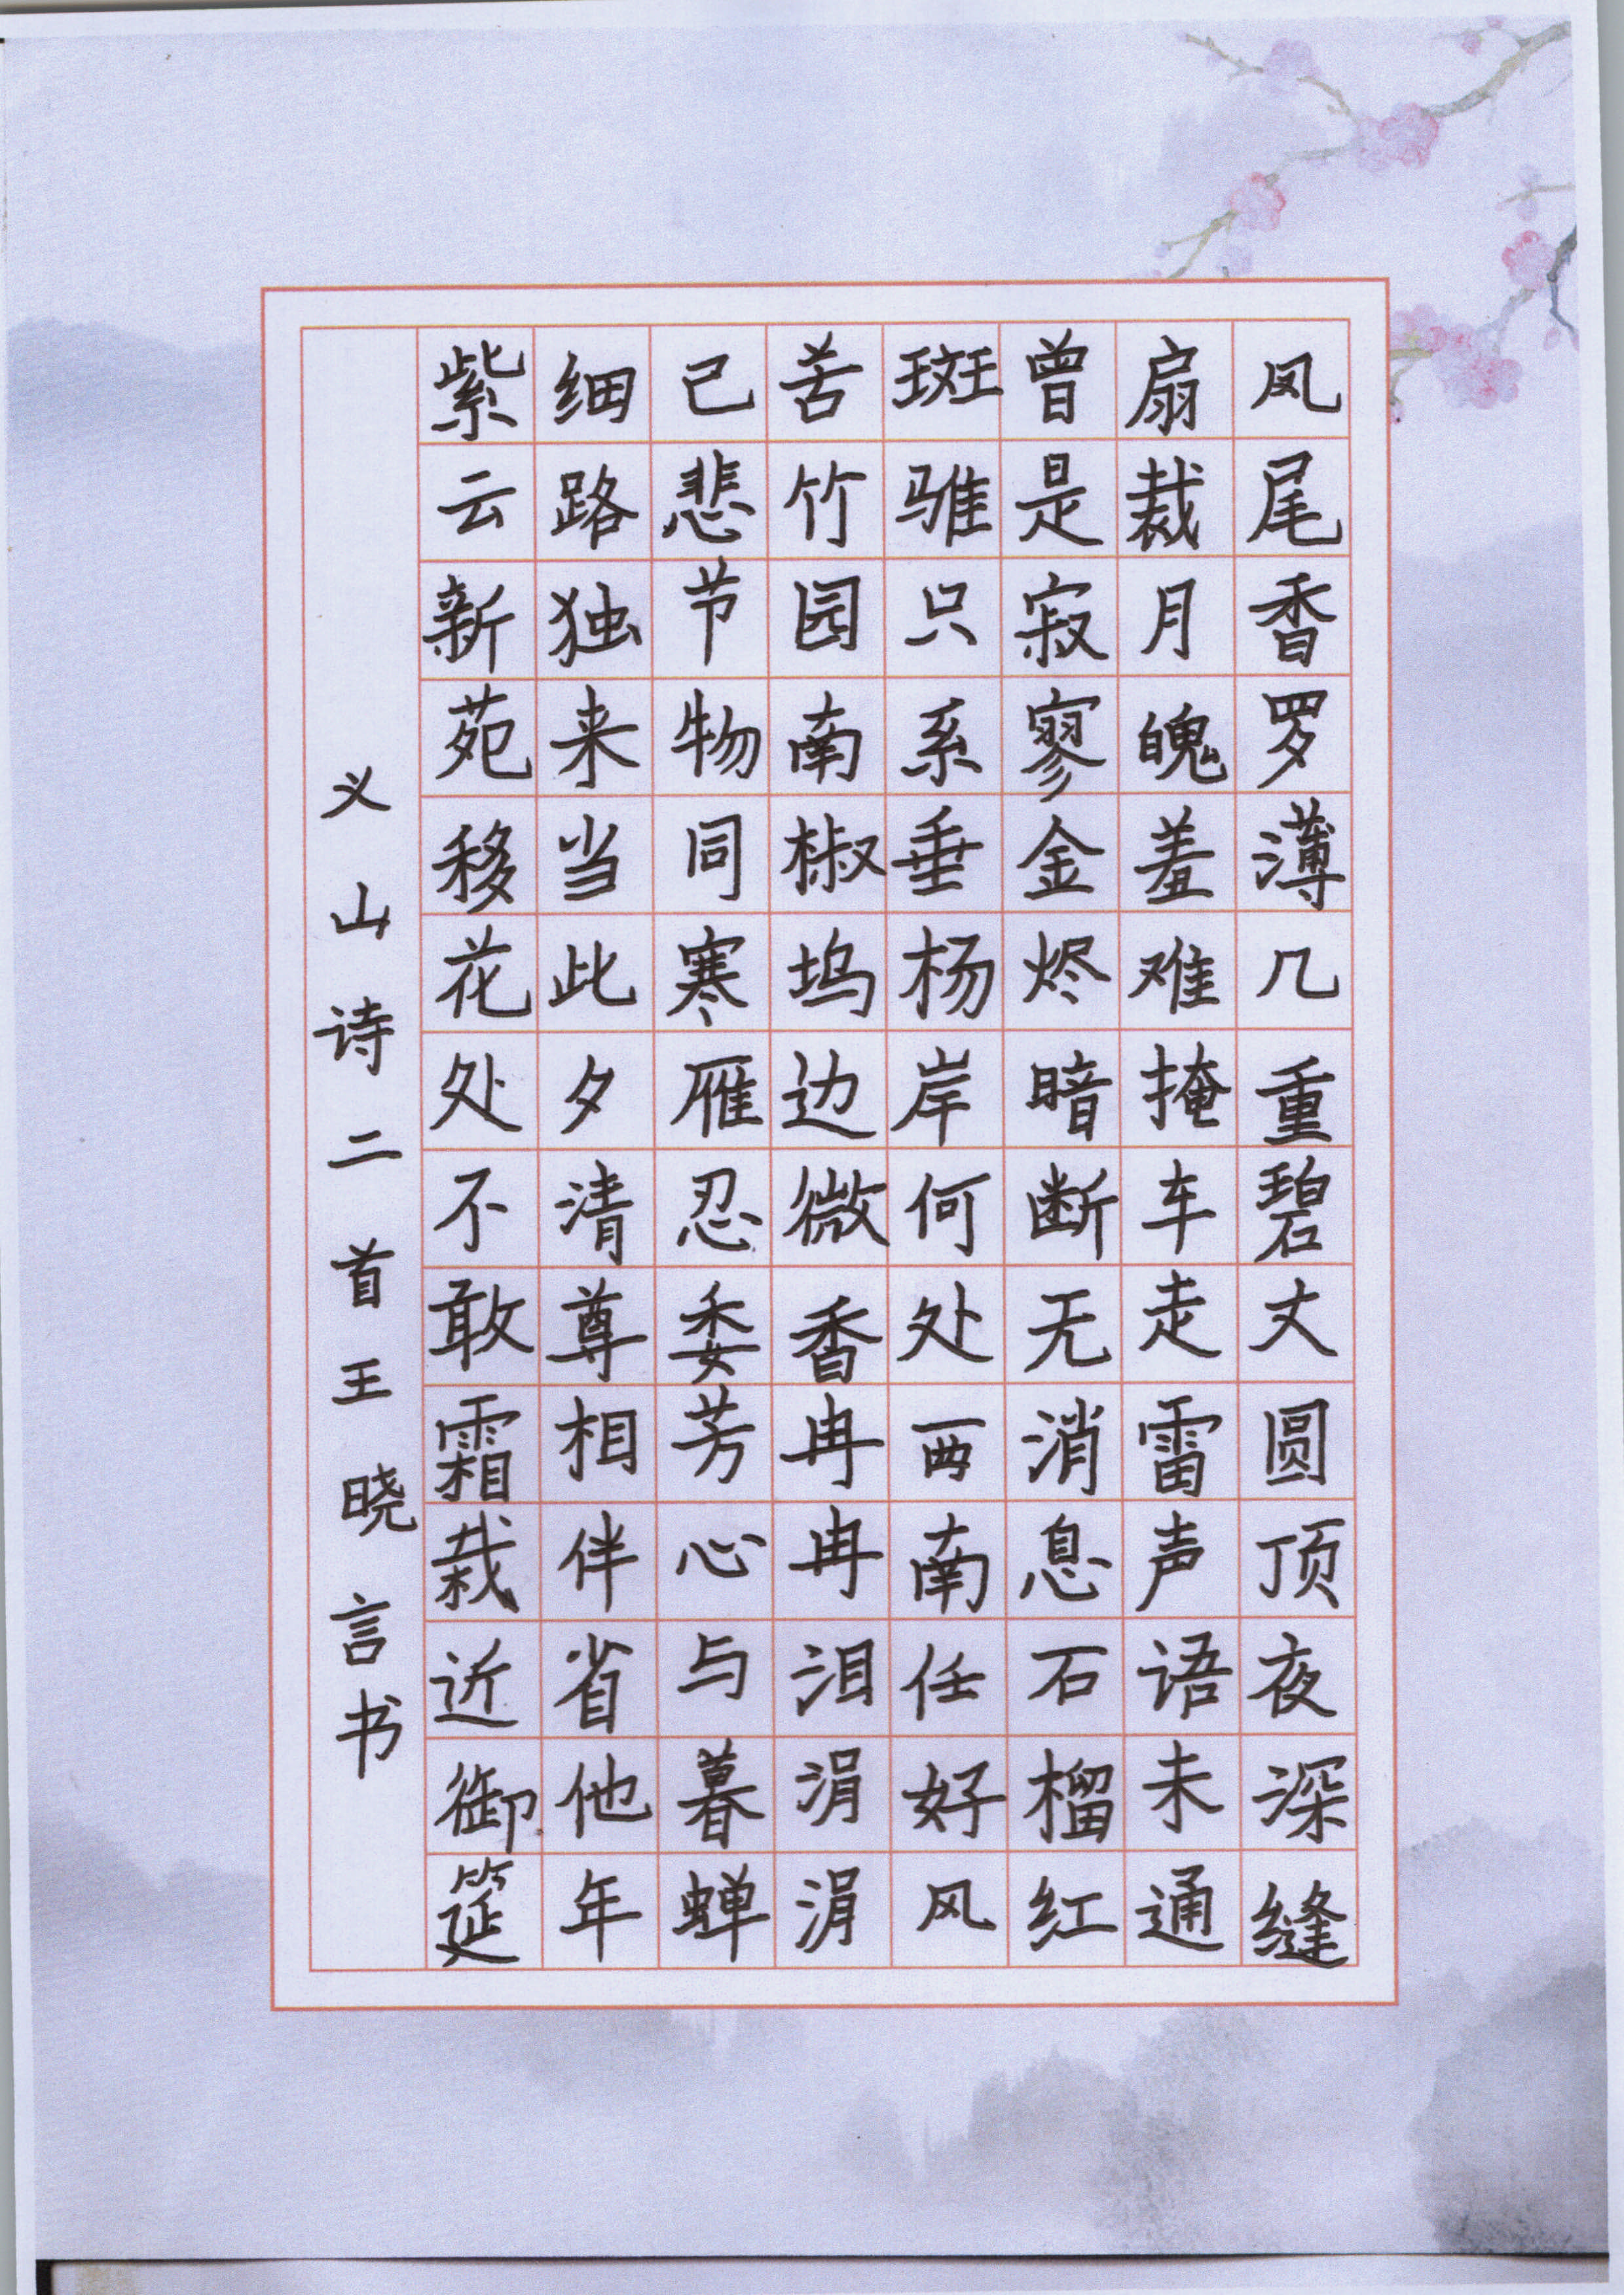 凤尾香罗薄几重碧丈圆顶夜深缝
扇裁月魄羞难掩车走雷声语未通
曾是寂寥金烬暗断无消息石榴红
斑骓只系垂杨岸何处西南任好风
苦竹园南椒坞边微香冉冉泪涓涓
已悲节物同寒雁忍委芳心与暮蝉
细路独来当此夕清尊相伴省他年
紫云新苑移花处不敢霜栽近御筵
义山诗二首王晓言书